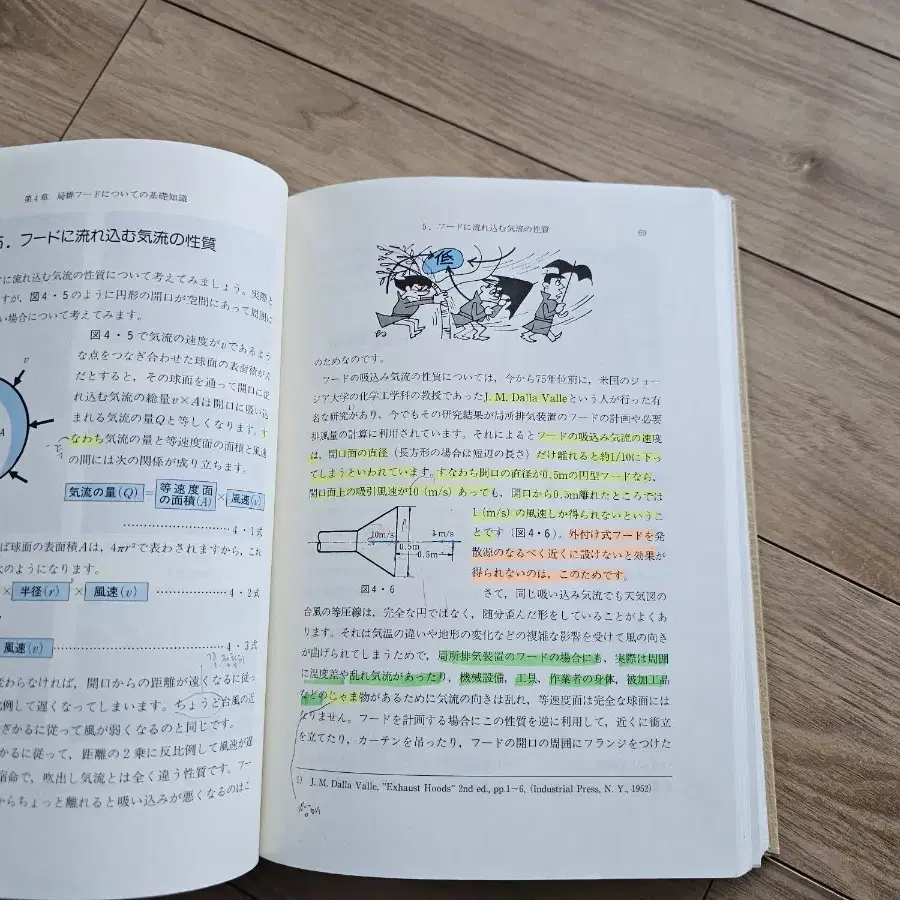 第4章 局排フードについての基礎知識
5. フードに流れ込む気流の性質
に流れ込む気流の性質について考えてみましょう。実際と
すが、図4・5のように円形の開口が空間にあって周囲に
い場合について考えてみます。
図4・5で気流の速度がvであるよう
な点をつなぎ合わせた球面の表面積がA
だとすると、その球面を通って開口に流
れ込む気流の総量v×Aは開口に吸い込
まれる気流の量Qと等しくなります。す
なわち気流の量と等速度面の面積と風速
の間には次の関係が成り立ちます。
v
A
気流の量(Q) = 等速度面の面積(A) × 風速(v)
……………………4・1式
ば球面の表面積Aは、4πr²で表わされますから、これ
のようになります。
× 半径(r)² × 風速(v) ……………4・2式
風速(v) ……………………………4・3式
変わらなければ、開口からの距離が遠くなるに従っ
比例して遅くなってしまいます。ちょうど台風の近
ざかるに従って風が弱くなるのと同じです。
かるに従って、距離の2乗に反比例して風速が遅
宿命で、吹出し気流とは全く違う性質です。フー
からちょっと離れると吸い込みが悪くなるのはこ
5. フードに流れ込む気流の性質
69
低
のためなのです。
フードの吸込み気流の性質については、今から75年位前に、米国のジョー
ジア大学の化学工学科の教授であったJ. M. Dalla Valleという人が行った有
名な研究があり、今でもその研究結果が局所排気装置のフードの計画や必要
排風量の計算に利用されています。それによるとフードの吸込み気流の速度
は、開口面の直径（長方形の場合は短辺の長さ）だけ離れると約1/10に下っ
てしまうといわれています。すなわち開口の直径が0.5mの円型フードなら、
開口面上の吸引風速が10 (m/s) あっても、開口から0.5m離れたところでは
1 (m/s) の風速しか得られないというこ
とです（図4・6）。外付け式フードを発
散源のなるべく近くに設けないと効果が
得られないのは、このためです。
10m/s
1m/s
0.5m
0.5m
図4・6
さて、同じ吸い込み気流でも天気図の
台風の等圧線は、完全な円ではなく、随分歪んだ形をしていることがよくあ
ります。それは気温の違いや地形の変化などの複雑な影響を受けて風の向き
が曲げられてしまうためで、局所排気装置のフードの場合にも、実際は周囲
に温度差や乱れ気流があったり、機械設備、工具、作業者の身体、被加工品
などのじゃま物があるために気流の向きは乱れ、等速度面は完全な球面には
なりません。フードを計画する場合にこの性質を逆に利用して、近くに衝立
を立てたり、カーテンを吊ったり、フードの開口の周囲にフランジをつけた
1) J. M. Dalla Valle, "Exhaust Hoods" 2nd ed., pp.1~6, (Industrial Press, N. Y., 1952)